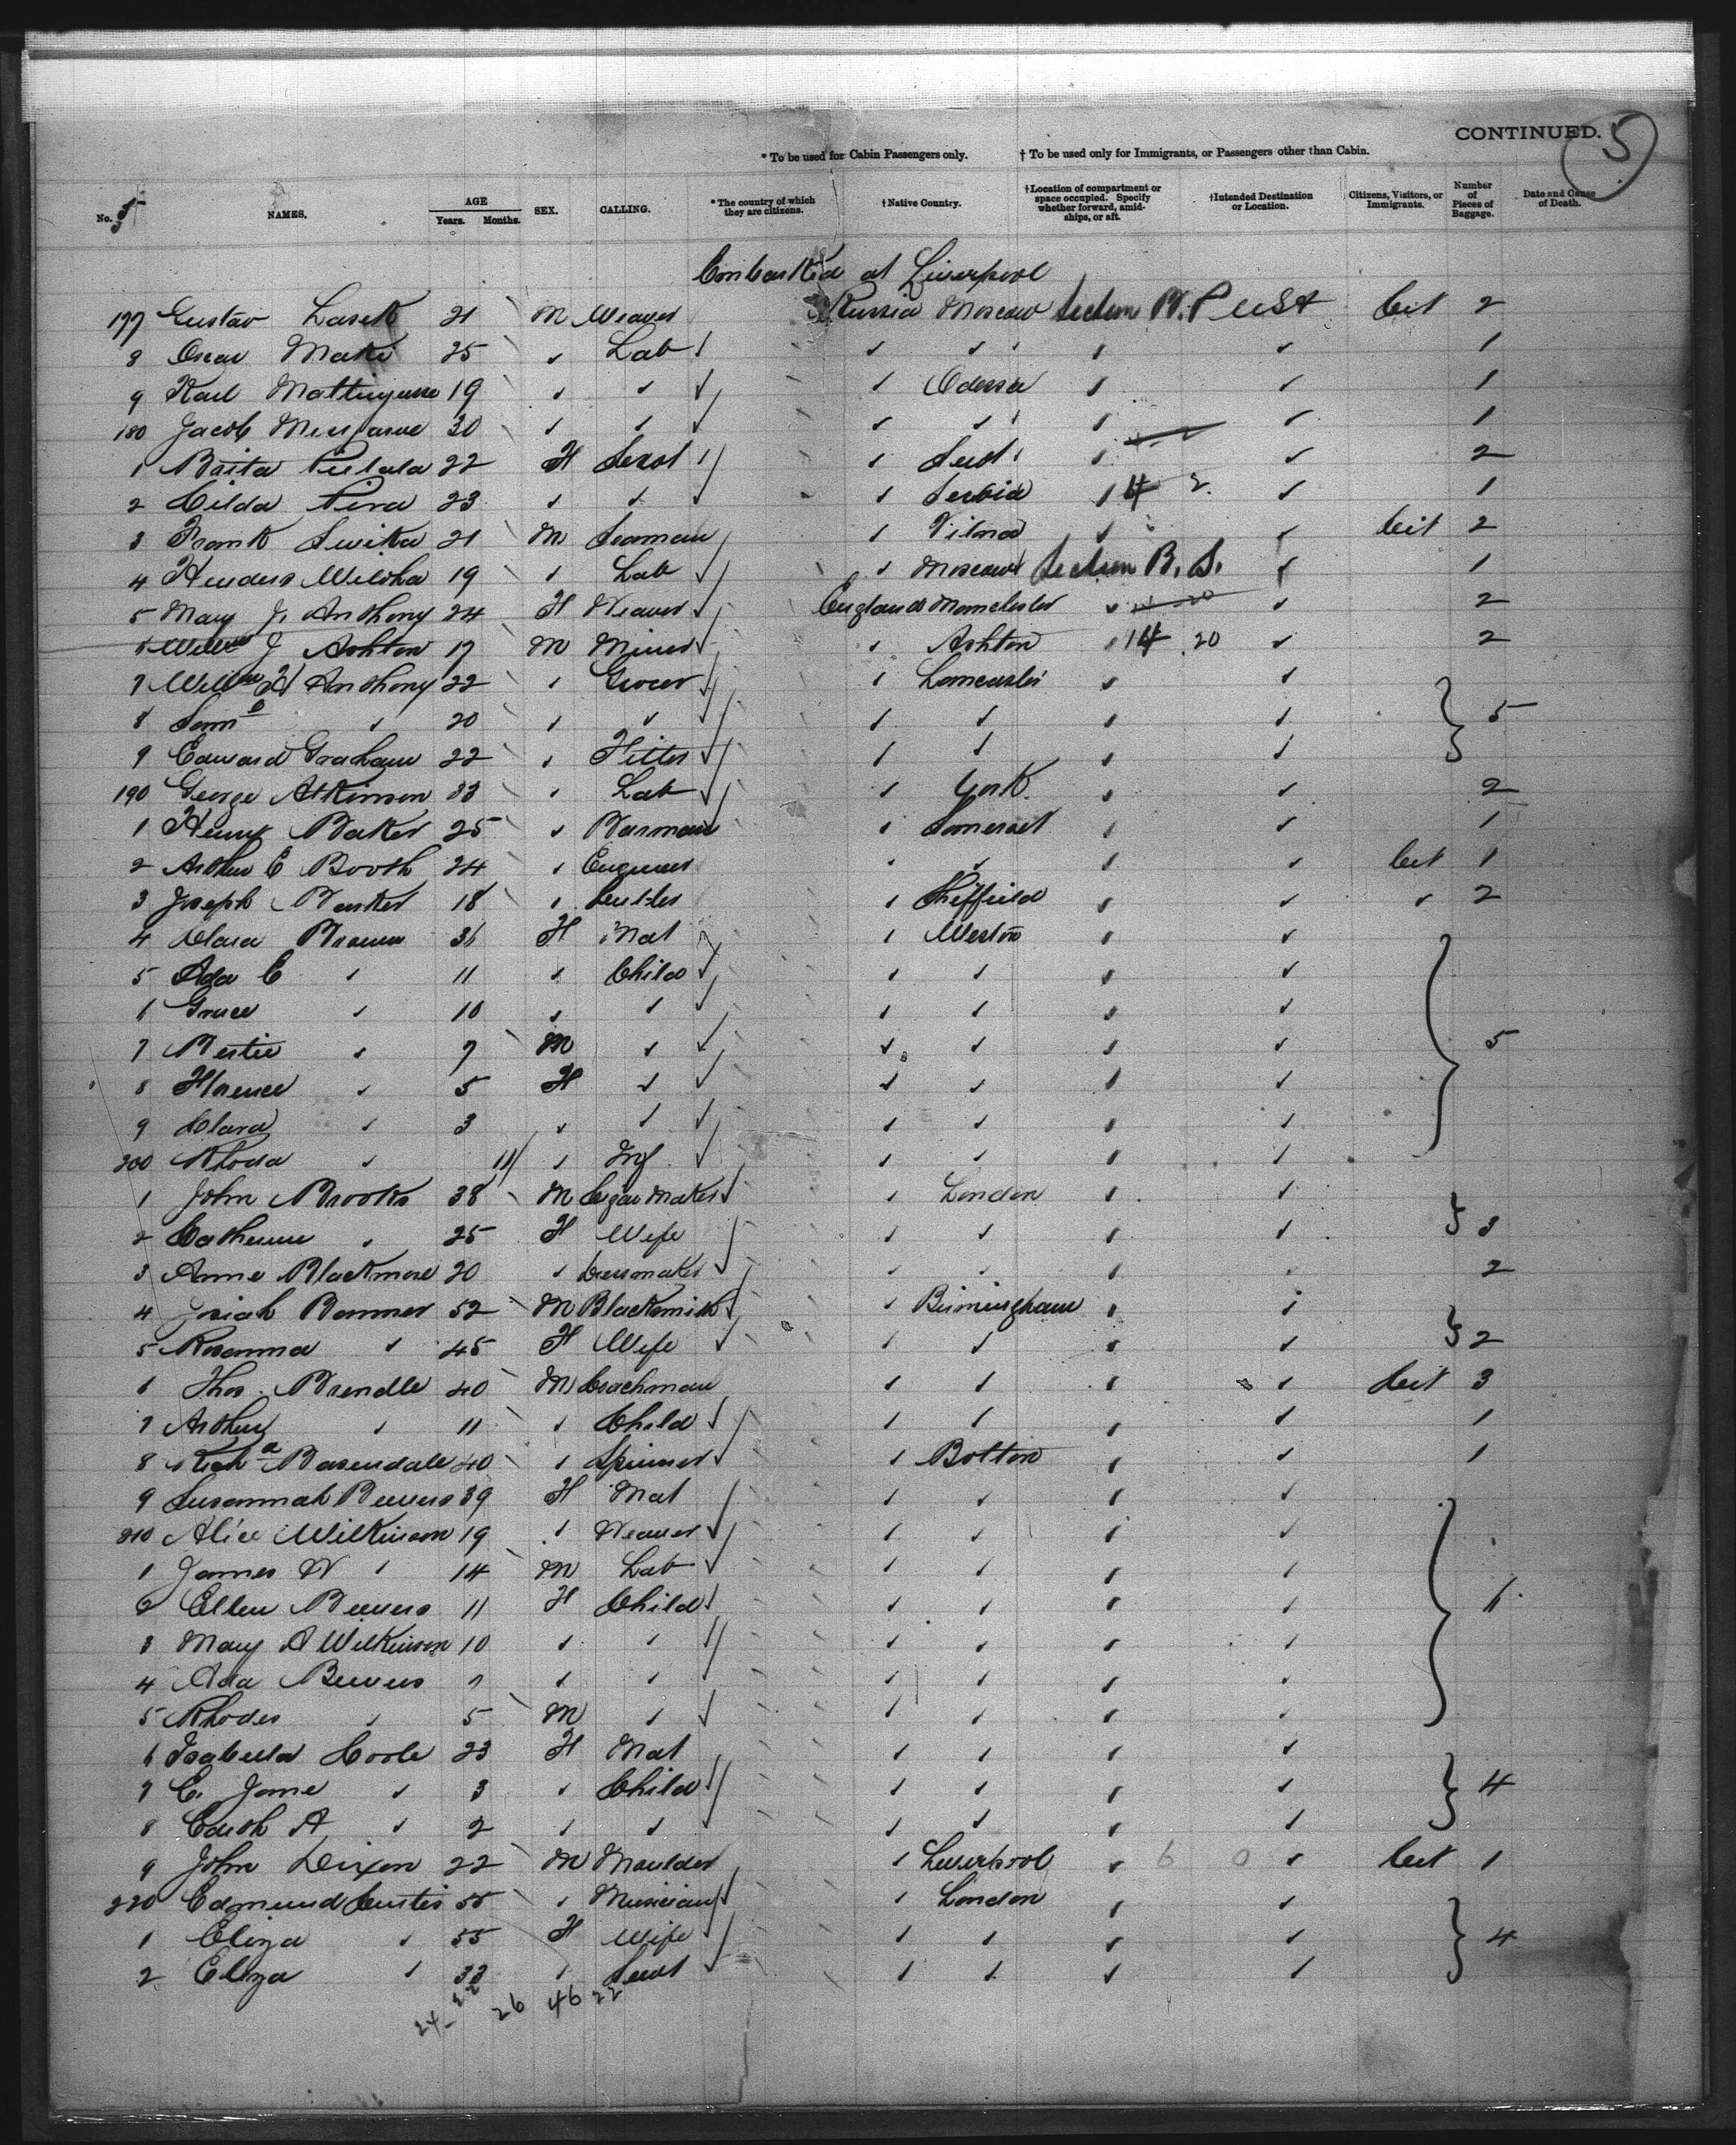 CONTINUED. 5
* To be used for Cabin Passengers only. † To be used only for Immigrants, or Passengers other than Cabin.
No. 5 NAMES. AGE Years. Months. SEX. CALLING. * The country of which they are citizens. † Native Country. † Location of compartment or space occupied. Specify whether forward, amidships, or aft. † Intended Destination or Location. Citizens, Visitors, or Immigrants. Number of Pieces of Baggage. Date and Cause of Death.
Embarked at Liverpool
177 Gustav Lasek 21 M Weaver Russia Moscow Section W. P USA Cit 2
8 Oscar Maki 25 ✓ Lab ✓ ✓ ✓ ✓ 1
9 Karl 19 ✓ ✓ ✓ Odessa ✓ ✓ 1
180 Jacob 30 ✓ ✓ ✓ ✓ ✓ ✓ 1
1 Brita 22 F Servt ✓ ✓ ✓ 2
2 Hilda 23 ✓ ✓ ✓ ✓ 14 2 ✓ 1
3 Frank 21 M Seaman ✓ Vilna ✓ ✓ Cit 2
4 19 ✓ Lab ✓ Moscow Section B. S. ✓ 1
5 Mary J. Anthony 24 F Weaver England Manchester ✓ ✓ 2
6 Willm J Ashton 17 M Miner ✓ Ashton ✓ 14 20 ✓ 2
7 Willm H Anthony 22 ✓ Grocer ✓ Lancaster ✓ ✓
8 Saml ✓ 20 ✓ ✓ ✓ ✓ ✓ ✓ 5
9 Edward Graham 22 ✓ Fitter ✓ ✓ ✓ ✓
190 George Atkinson 33 ✓ Lab ✓ York ✓ ✓ 2
1 Henry Baker 25 ✓ Barman ✓ Somerset ✓ ✓ 1
2 Arthur E Booth 24 ✓ Engineer ✓ ✓ ✓ ✓ Cit 1
3 Joseph Barker 18 ✓ Cutler ✓ Sheffield ✓ ✓ ✓ 2
4 Clara Brown 36 F Mat ✓ Weston ✓ ✓
5 Ada E ✓ 11 ✓ Child ✓ ✓ ✓ ✓
6 Grace ✓ 10 ✓ ✓ ✓ ✓ ✓ ✓
7 Bertie ✓ 7 M ✓ ✓ ✓ ✓ ✓ 5
8 Florence ✓ 5 F ✓ ✓ ✓ ✓ ✓
9 Clara ✓ 3 ✓ ✓ ✓ ✓ ✓ ✓
200 Rhoda ✓ 11 ✓ Inf ✓ ✓ ✓ ✓
1 John Brooks 38 M Cigar Maker ✓ London ✓ ✓
2 Catherine ✓ 25 F Wife ✓ ✓ ✓ ✓ 3
3 Anne Blackmore 20 ✓ Dressmaker ✓ ✓ ✓ ✓ 2
4 Josiah Banner 52 M Blacksmith ✓ Birmingham ✓ ✓
5 Rosanna ✓ 45 F Wife ✓ ✓ ✓ ✓ 2
6 Thos. Brendle 40 M Coachman ✓ ✓ ✓ ✓ Cit 3
7 Arthur ✓ 11 ✓ Child ✓ ✓ ✓ ✓ 1
8 Richd Basendale 40 ✓ Spinner ✓ Bolton ✓ ✓ 1
9 Susannah Beevers 39 F Mat ✓ ✓ ✓ ✓
210 Alice Wilkinson 19 ✓ Weaver ✓ ✓ ✓ ✓
1 James W ✓ 14 M Lab ✓ ✓ ✓ ✓
2 Ellen Beevers 11 F Child ✓ ✓ ✓ ✓ 6
3 Mary A Wilkinson 10 ✓ ✓ ✓ ✓ ✓ ✓
4 Ada Beevers 7 ✓ ✓ ✓ ✓ ✓ ✓
5 Rhodes ✓ 5 M ✓ ✓ ✓ ✓ ✓
6 Isabella Coole 23 F Mat ✓ ✓ ✓ ✓
7 E. Jane ✓ 3 ✓ Child ✓ ✓ ✓ ✓ 4
8 Edith A ✓ 2 ✓ ✓ ✓ ✓ ✓ ✓
9 John Dixon 22 M Moulder ✓ Liverpool ✓ 6 0 ✓ Cit 1
220 Edmund Curtis 55 ✓ Musician ✓ London ✓ ✓
1 Eliza ✓ 55 F Wife ✓ ✓ ✓ ✓ 4
2 Eliza ✓ 33 ✓ Servt ✓ ✓ ✓ ✓
24 22 26 46 22